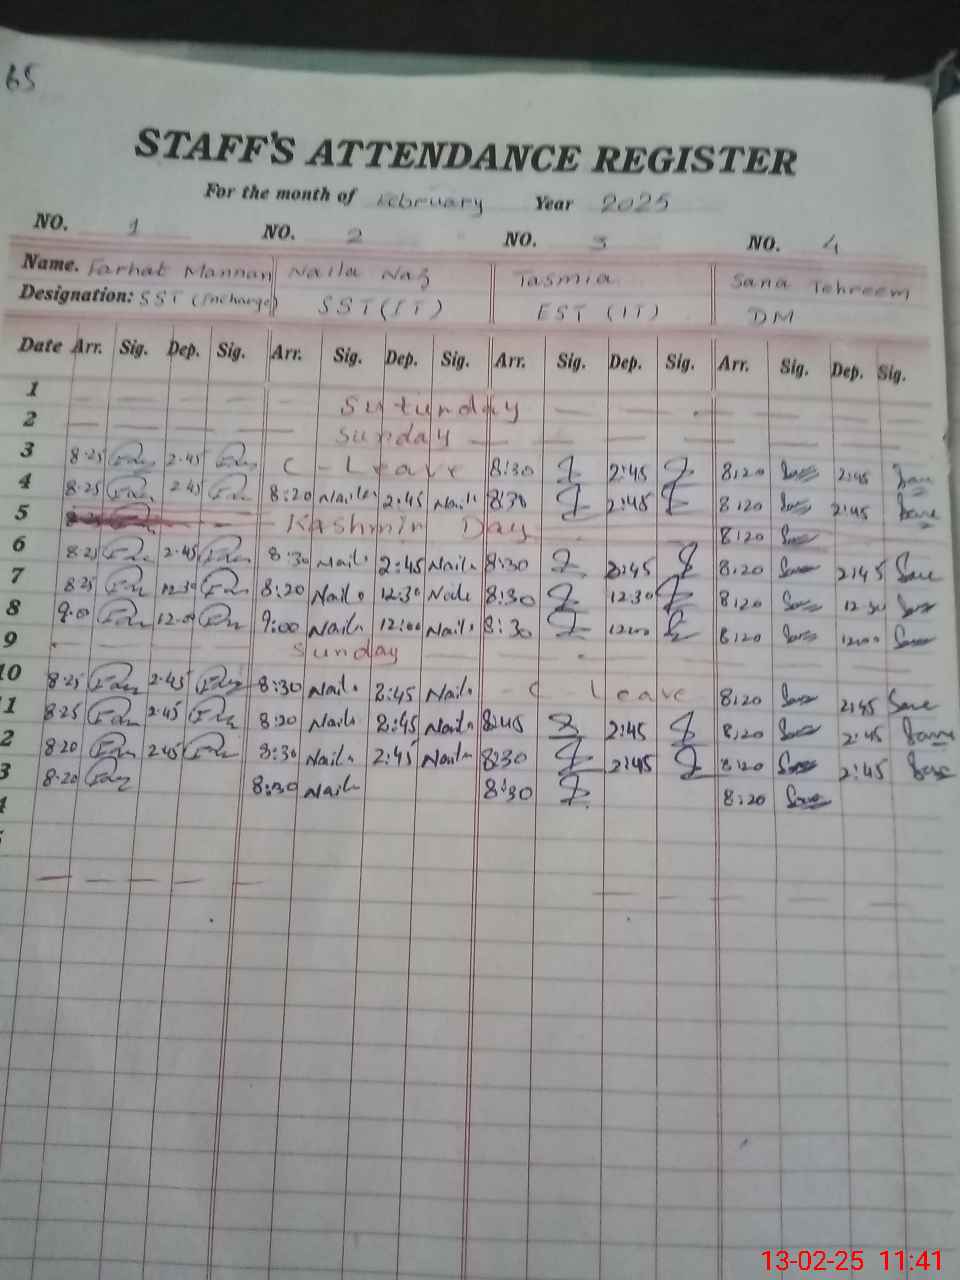 65
STAFF'S ATTENDANCE REGISTER
For the month of February Year 2025
NO. 1 NO. 2 NO. 3 NO. 4
Name. Farhat Mannan Naila Naz Tasmia Sana Tehreem
Designation: SST (Incharge) SST (IT) EST (IT) DM
Date Arr. Sig. Dep. Sig. Arr. Sig. Dep. Sig. Arr. Sig. Dep. Sig. Arr. Sig. Dep. Sig.
1 Saturday
2 Sunday
3 8-25 2-45 C-Leave 8:30 2:45 8:20 2:45
4 8-25 2-45 8:20 Naila 2:45 Naila 8:30 2:45 8:20 2:45
5 Kashmir Day 8:20
6 8-25 2-45 8:30 Naila 2:45 Naila 8:30 2:45 8:20 2:45
7 8-25 12-30 8:20 Naila 12:30 Naila 8:30 12:30 8:20 12:30
8 9:00 12:00 9:00 Naila 12:00 Naila 8:30 12:00 8:20 12:00
9 Sunday
10 8-25 2-45 8:30 Naila 2:45 Naila C Leave 8:20 2:45
1 8-25 2-45 8:20 Naila 2:45 Naila 8:45 2:45 8:20 2:45
2 8-20 2-45 8:30 Naila 2:45 Naila 8:30 2:45 8:20 2:45
3 8-20 8:30 Naila 8:30 8:20
13-02-25 11:41